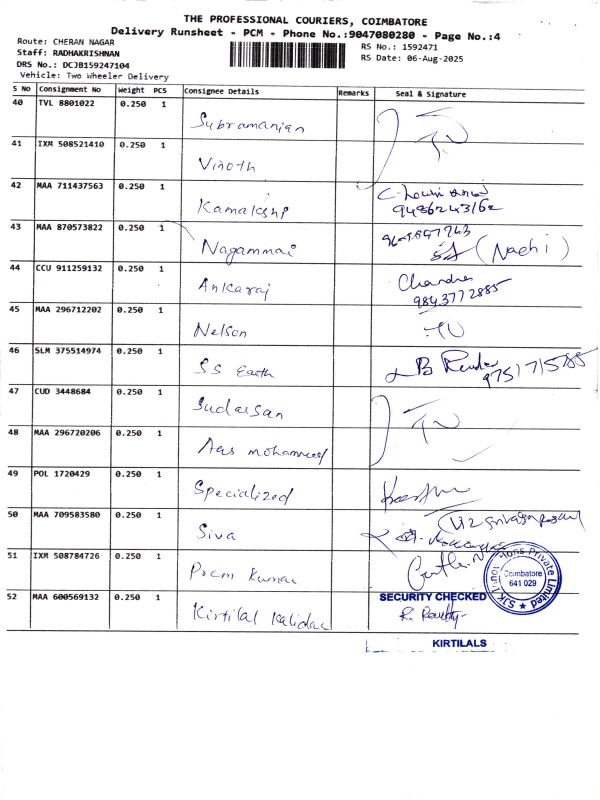 THE PROFESSIONAL COURIERS, COIMBATORE
Delivery Runsheet - PCM - Phone No.:9047080280 - Page No.:4
Route: CHERAN NAGAR
RS No.: 1592471
Staff: RADHAKRISHNAN
RS Date: 06-Aug-2025
DRS No.: DCJB159247104
Vehicle: Two Wheeler Delivery
S No Consignment No Weight PCS Consignee Details Remarks Seal & Signature
40 TVL 8801022 0.250 1 Subramanian
41 IXM 508521410 0.250 1 Vinoth
42 MAA 711437563 0.250 1 Kamakshi
9486243162
43 MAA 870573822 0.250 1 Nagammai (Nachi)
44 CCU 911259132 0.250 1 Ankaraj Chandra
9843772885
45 MAA 296712202 0.250 1 Nelson
46 SLM 375514974 0.250 1 SS Earth 9751715785
47 CUD 3448684 0.250 1 Sudarsan
48 MAA 296720206 0.250 1 Aas mohammed
49 POL 1720429 0.250 1 Specialized
50 MAA 709583580 0.250 1 Siva
51 IXM 508784726 0.250 1 Prem Kumar
Coimbatore
641 029
Private Limited
52 MAA 600569132 0.250 1 Kirtilal Kalidas SECURITY CHECKED
KIRTILALS